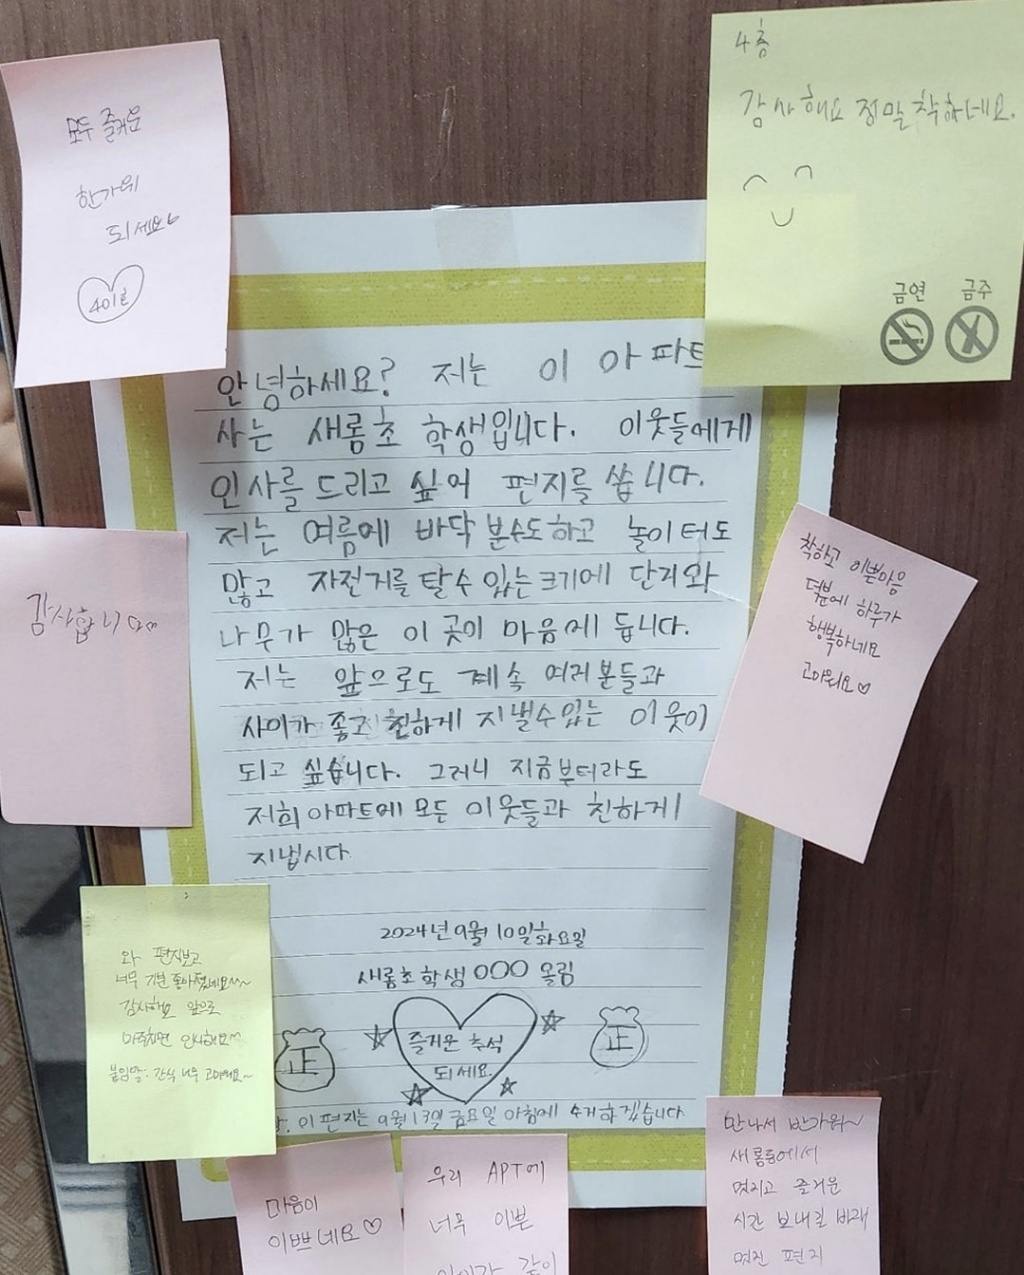 모두 즐거운
한가위
되세요
401호
4층
감사해요 정말 착하네요.
금연 금주
안녕하세요? 저는 이 아파트
사는 새롬초 학생입니다. 이웃들에게
인사를 드리고 싶어 편지를 씁니다.
저는 여름에 바닥 분수도하고 놀이터도
많고 자전거를 탈수 있는 크기에 단지와
나무가 많은 이 곳이 마음에 듭니다.
저는 앞으로도 계속 여러분들과
사이가 좋고 친하게 지낼수있는 이웃이
되고 싶습니다. 그러니 지금부터라도
저희 아파트에 모든 이웃들과 친하게
지냅시다
2024년 9월 10일 화요일
새롬초 학생 OOO 올림
正
즐거운 추석
되세요.
正
이 편지는 9월 13일 금요일 아침에 수거하겠습니다
감사합니다♡
착하고 이쁜마음
덕분에 하루가
행복하네요
고마워요♡
와 편지보고
너무 기분 좋아졌네요~~
감사해요 앞으로
마주치면 인사해요
붙임말. 간식 너무 고마워요~
마음이
이쁘네요♡
우리 APT에
너무 이쁜
같이
만나서 반가워~
새롬동에서
멋지고 즐거운
시간 보내길 바래
멋진 편지